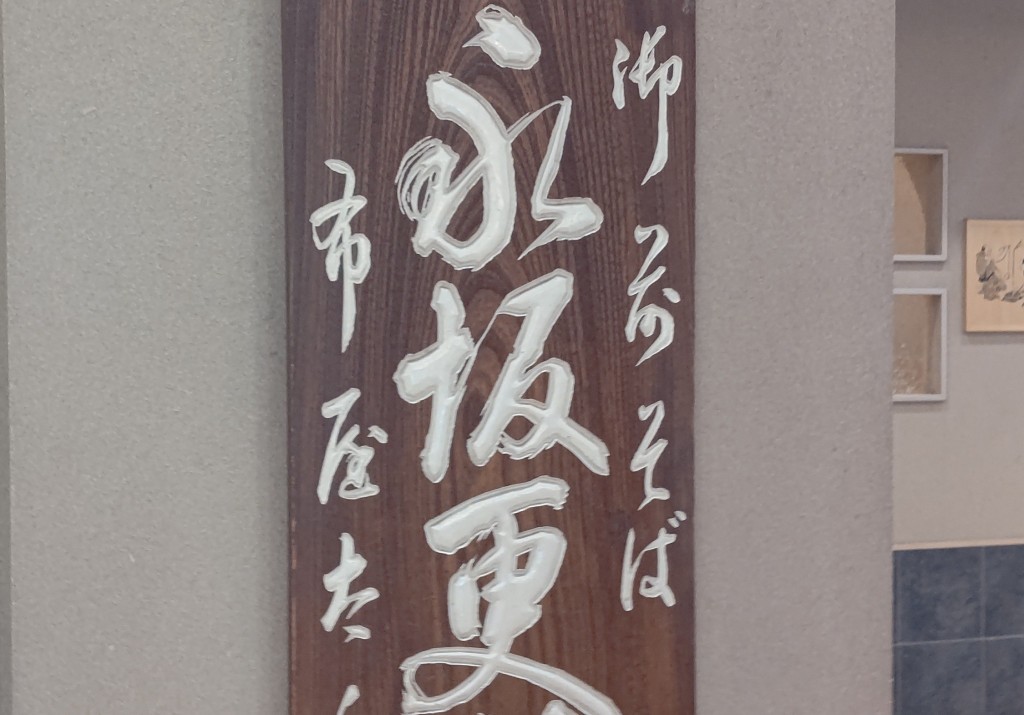 御前そば
永坂更
布屋太